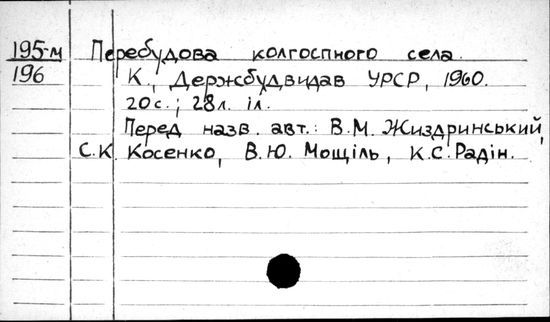 195-м Перебудова колгоспного села.
196 К., Держбудвидав УРСР, 1960.
20с.; 28л. іл.
Перед назв. авт.: В.М. Жиздринський,
С.К. Косенко, В.Ю. Мощіль, К.С. Радін.